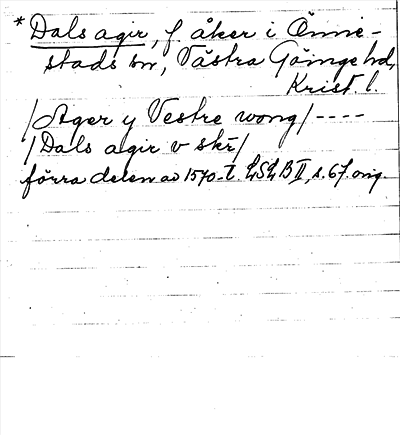 * Dals agir, f. åker i Önne-
stads sn, Västra Göinge hd,
Krist. l.
/Ager y Vestre wong/ ----
/Dals agir v skr/
förra delen av 1570-t. LSLB II, s. 67. orig.